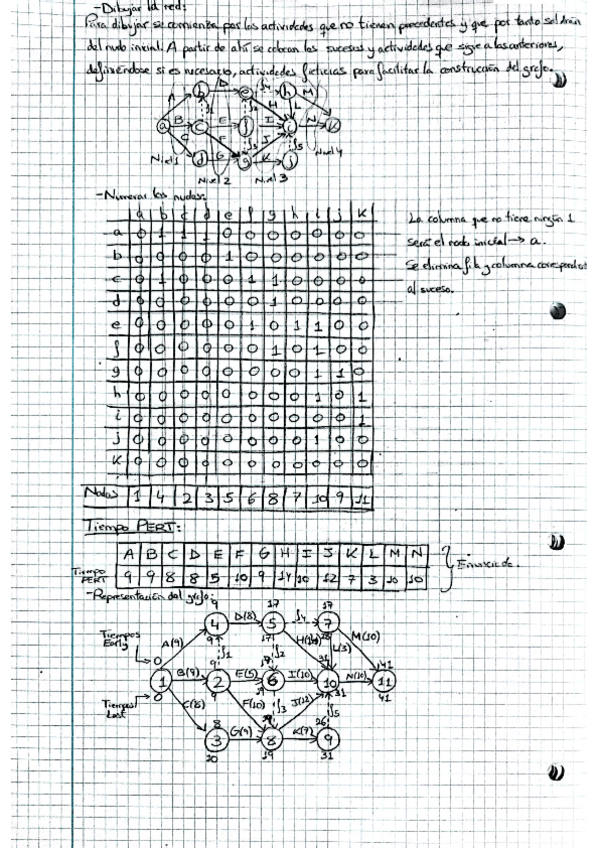 -Dibujar la red:
Para dibujar se comienza por las actividades que no tienen precedentes y que por tanto saldrán
del nudo inicial. A partir de ahí se colocan los sucesos y actividades que sigue a las anteriores,
definiéndose si es necesario, actividades ficticias para facilitar la construcción del grafo.
b D e f4 h M
A f1 f2 H L
a B c E f I i N k
C F f3 J f5
d G g K j
Nivel 1 Nivel 2 Nivel 3 Nivel 4
-Numerar los nudos:
a b c d e f g h i j k
a 0 1 1 1 0 0 0 0 0 0 0
b 0 0 0 0 1 0 0 0 0 0 0
c 0 1 0 0 0 1 1 0 0 0 0
d 0 0 0 0 0 0 1 0 0 0 0
e 0 0 0 0 0 1 0 1 1 0 0
f 0 0 0 0 0 0 1 0 1 0 0
g 0 0 0 0 0 0 0 0 1 1 0
h 0 0 0 0 0 0 0 0 1 0 1
i 0 0 0 0 0 0 0 0 0 0 1
j 0 0 0 0 0 0 0 0 1 0 0
K 0 0 0 0 0 0 0 0 0 0 0
Nodos 1 4 2 3 5 6 8 7 10 9 11
La columna que no tiene ningún 1
será el nodo inicial → a.
Se elimina fila y columna correspondiente
al suceso.
Tiempo PERT:
A B C D E F G H I J K L M N
Tiempo PERT 9 9 8 8 5 10 9 14 10 12 7 3 10 10
Enunciado.
-Representación del grafo:
9 17 17
4 D(8) 5 f4 7
Tiempos Early
A(9) 9 f1 17 f2 H(14) 28 L(3) M(10)
0 9 17 31 41
1 B(9) 2 E(5) 6 I(10) 10 N(10) 11
0 9 19 31 41
Tiempos Last
C(8) F(10) f3 J(12) f5
8 19 26
3 G(9) 8 K(7) 9
10 19 31